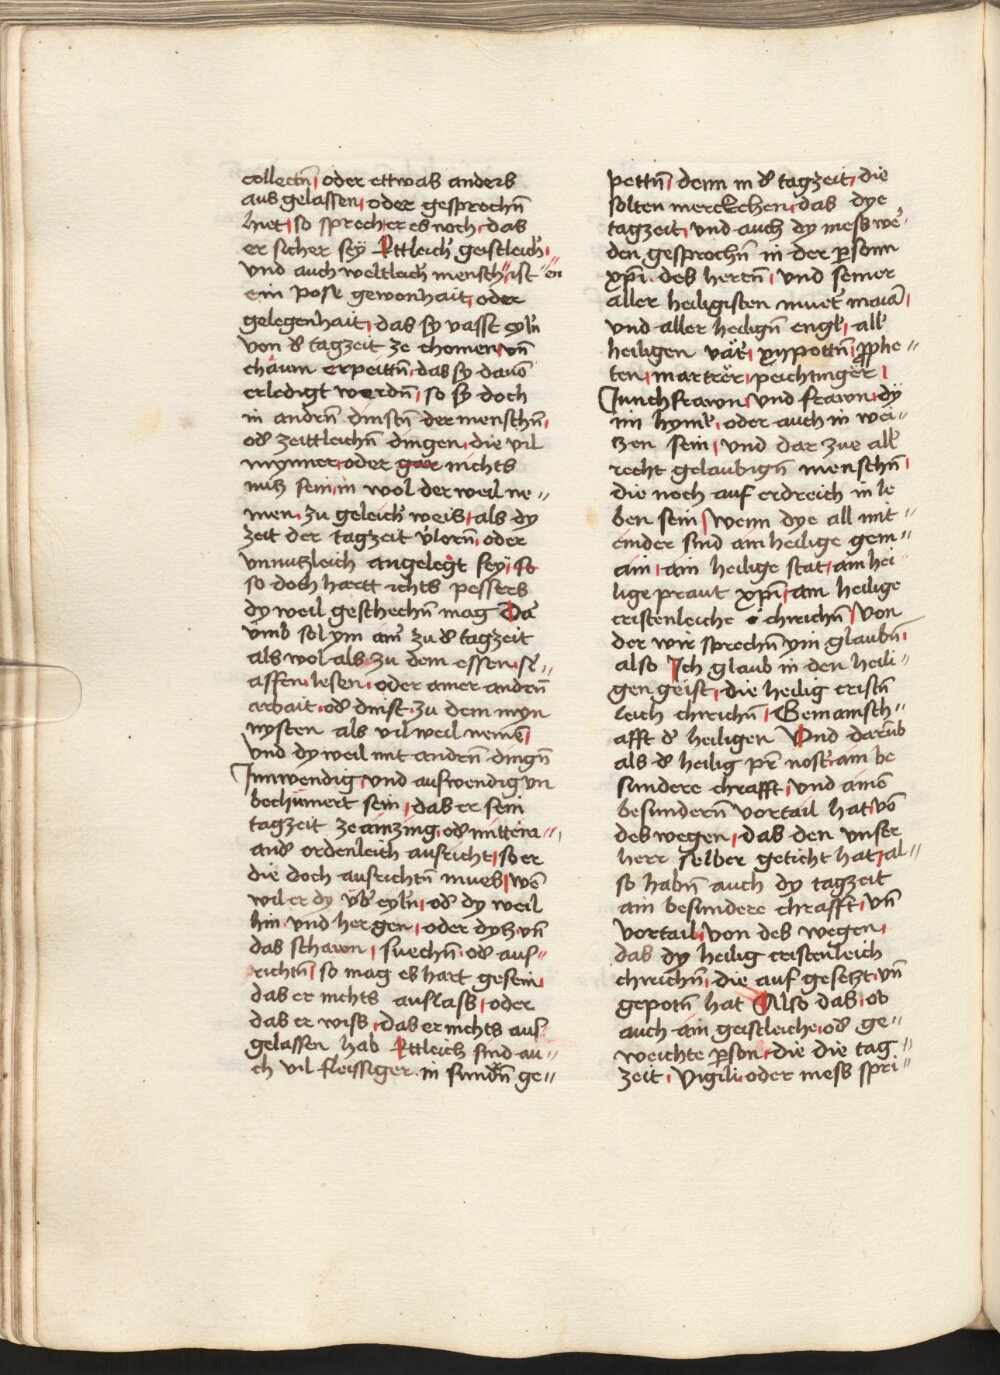 collectn̄ oder ettwas anders
aus gelassen oder gesprochn̄
hiet so sprech er es noch das
er sicher seÿ Ettleich geistleich
und auch weltleich mensch ist en
ein pose gewonhait oder
gelegenhait das sy vasst eyln̄
von d̓ tagzeit ze chomen vn̄
chäum erpeittn̄ das sy dauō
erledigt werdn̄ so sy doch
in andrn̄ dinstn̄ der menschn̄
od̓ zeittleichn̄ dingen die vil
mynner oder gar nichts
nutz sein in wol der weil ne〃
men zu geleich̓ weis als dy
zeit der tagzeit v̓lorn̄ oder
vnnutzleich angelegt seÿ so
so doch hartt ichts pessers
dy weil geschechn̄ mag Da
vmb sol ym ain̓ zu d̓ tagzeit
als wol als zu dem essen sl̓〃
affen lesen oder ainer andrn̄
arbait od̓ dinst zu dem myn
nysten als vil weil nemē
vnd dy weil mit andrn̄ dingn̄
Innwendig vnd auswendig vn
bechümert sein das er sein
tagzeit ze ainzing od̓ mitteina〃
and̓ ordenleich ausricht so er
die doch ausrichtn̄ mues wē
wil er dy vb̓ eyln̄ od̓ dy weil
hin vnd her gen oder dyt͛z vn̄
das schawn suechn̄ od̓ aus〃
richtn̄ so mag es hart gesein
das er nichts auslass oder
das er wiss das er nichts aus〃
gelassen hab Ettleich sind au〃
ch vil fleissiger in sundn̄ ge〃
pettn̄ denn in d̓ tagzeit die
solten merckchen das dye
tagzeit vnd auch dy mess we̓
den gesprochn̄ in der p̲sonn
xp̄i des heren̄ vnd seiner
aller heiligisten muet̓ maia̓
vnd aller heilign̄ engl̓ all̓
heiligen vät̓ xijpottn̄ p̲phe〃
ten martrer peichtinger
Junchfrawn vnd frawn dÿ
im hyml̓ oder auch in wei〃
tzen sein vnd dar zue all̓
recht gelaubign̄ menschn̄
die noch auf erdreich in le
ben sein wenn dye all mit〃
einder sind ain heilige gem〃
ain ain heilige stat ain hei〃
lige praut xp̄i ain heilige
cristenleiche chirichn̄ von
der wir sprechn̄ ym glaubn̄
also Ich glaub in den heili〃
gen geist die heilig cristn̄
leich chrichn̄ Gemainsch〃
afft d̓ heiligen Vnd darūb
als d̓ heilig pr̄ nost̓ ain be
sundere chrafft vnd ainē
besundern̄ vortail hat vō
des wegen das den vnser
herr selber geticht hat al〃
so habn̄ auch dy tagzeit
ain besundere chrafft vn̄
vortail von des wegen
das dy heilig cristenleich
chrichn̄ die auf gesetzt vn̄
gepotn̄ hat Also das ob
auch ain geistleiche od̓ ge〃
weichte p̲son die die tag〃
zeit Vigili oder mess spri〃